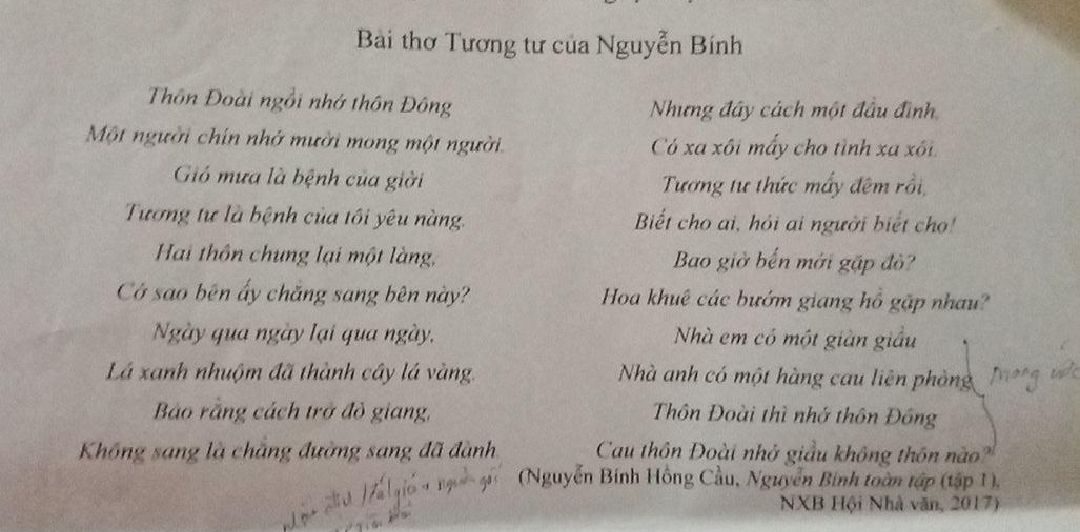 Bài thơ Tương tư của Nguyễn Bính
Thôn Đoài ngồi nhớ thôn Đông
Một người chín nhớ mười mong một người.
Gió mưa là bệnh của giời
Tương tư là bệnh của tôi yêu nàng.
Hai thôn chung lại một làng,
Cớ sao bên ấy chẳng sang bên này?
Ngày qua ngày lại qua ngày,
Lá xanh nhuộm đã thành cây lá vàng.
Bảo rằng cách trở đò giang,
Không sang là chẳng đường sang đã đành.
Nhưng đây cách một đầu đình,
Có xa xôi mấy cho tình xa xôi.
Tương tư thức mấy đêm rồi,
Biết cho ai, hỏi ai người biết cho!
Bao giờ bến mới gặp đò?
Hoa khuê các bướm giang hồ gặp nhau?
Nhà em có một giàn giầu
Nhà anh có một hàng cau liên phòng
Thôn Đoài thì nhớ thôn Đông
Cau thôn Đoài nhớ giầu không thôn nào?
(Nguyễn Bính Hồng Cầu, Nguyễn Bính toàn tập (tập 1),
NXB Hội Nhà văn, 2017)
mong